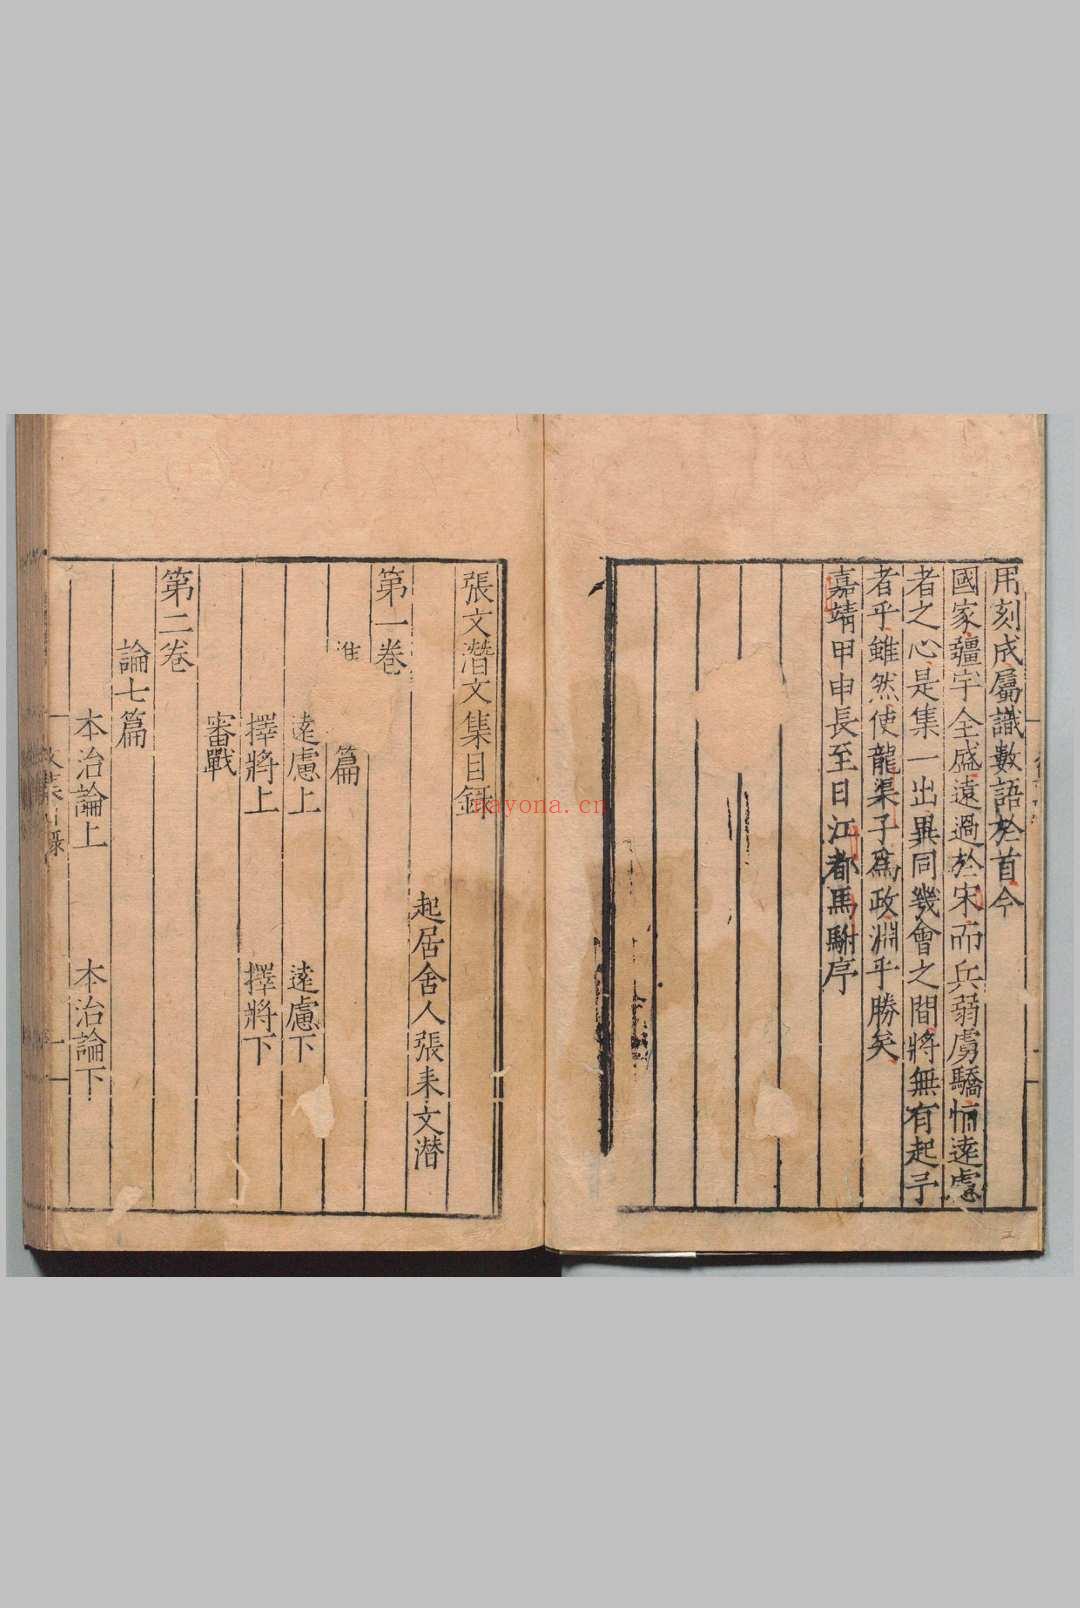 用刻成屬識數語於首今
國家疆宇全盛遠過於宋而兵弱虜驕恫遠慮
者之心是集一出異同幾會之間將無有起予
者乎雖然使龍渠子爲政淵乎勝矣
嘉靖甲申長至日江都馬駙序
張文潛文集目錄
起居舍人張耒文潛
第一卷
篇
遠慮上 遠慮下
擇將上 擇將下
審戰
第二卷
論七篇
本治論上 本治論下
nayona.cn